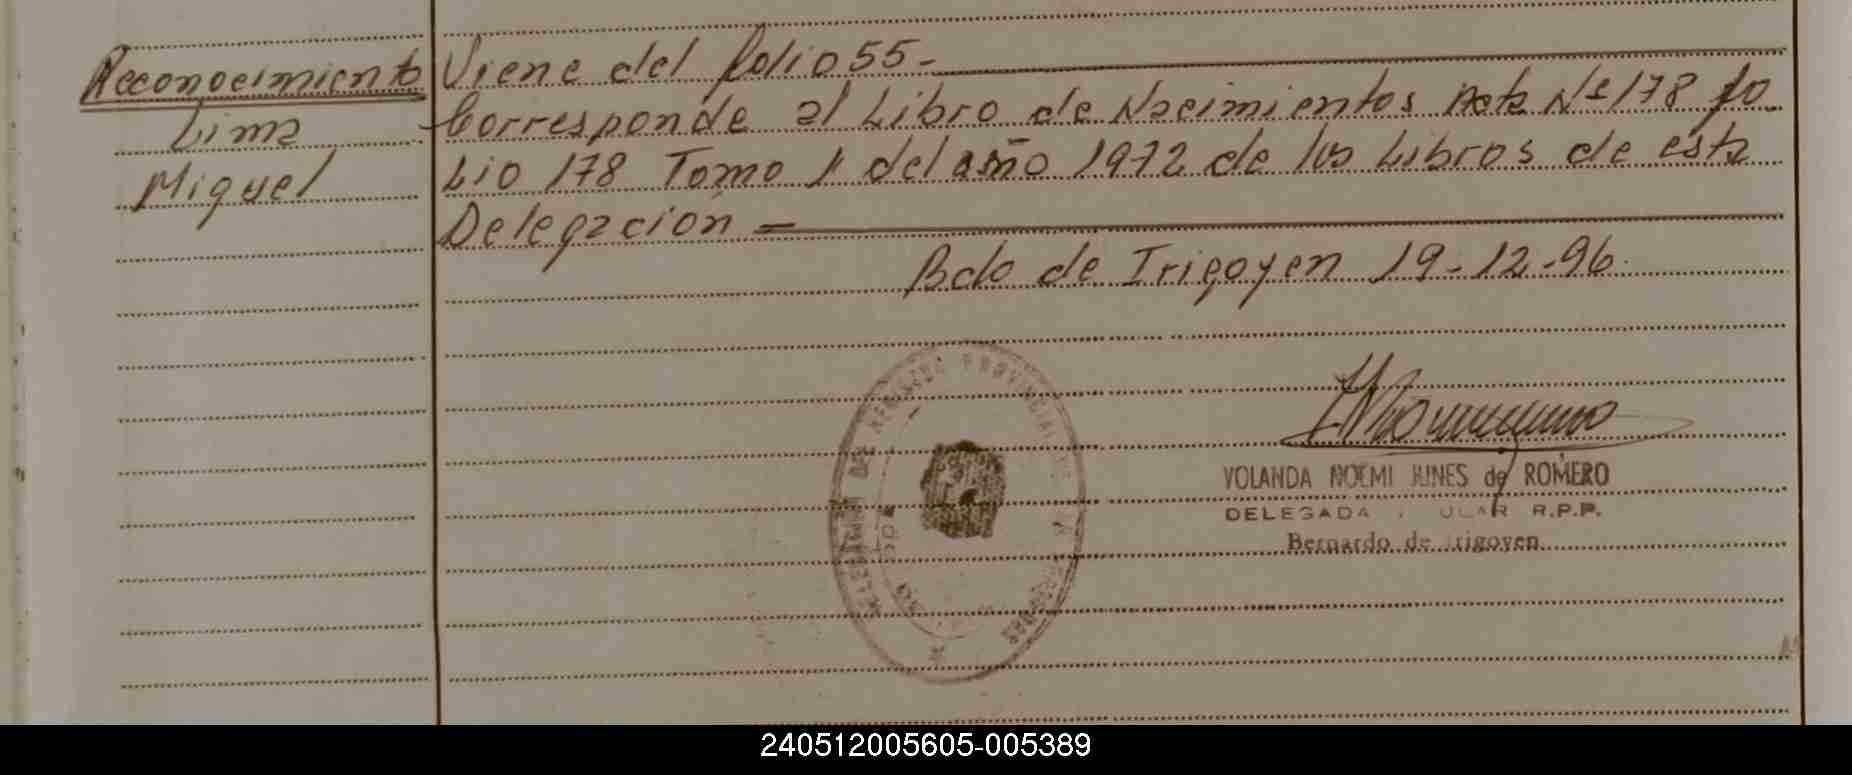 Reconocimiento
Lima
Miguel
Viene del folio 55 -
Corresponde al Libro de Nacimientos Acta Nº 178 fo
lio 178 Tomo 1 del año 1972 de los Libros de esta
Delegación =
Bdo de Irigoyen 19-12-96.
PROVINCIAL
YOLANDA NOEMI JUNES de ROMERO
DELEGADA R.P.P.
Bernardo de Irigoyen
240512005605-005389